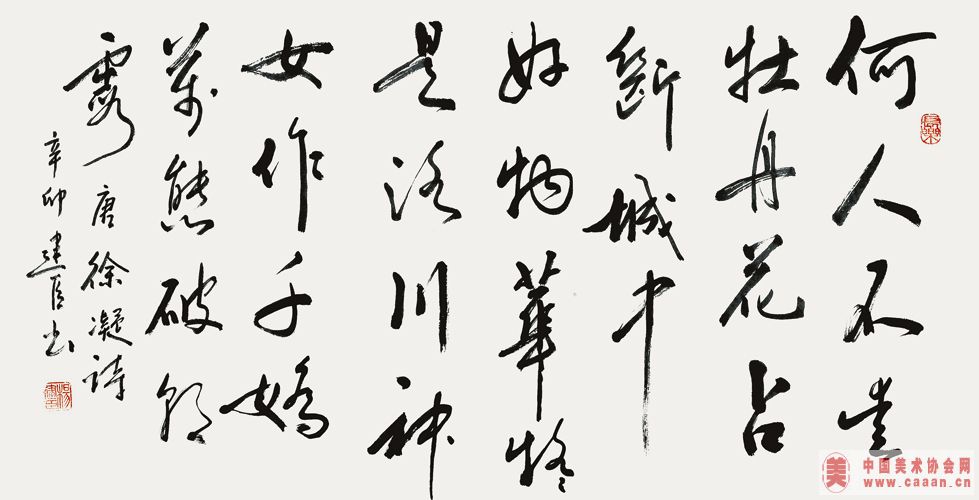 何人不爱
牡丹花占
斷城中
好物華疑
是洛川神
女作千嬌
萬態破朝
霞 唐徐凝詩
辛卯建书
美
中国美术协会网
www.caaan.cn